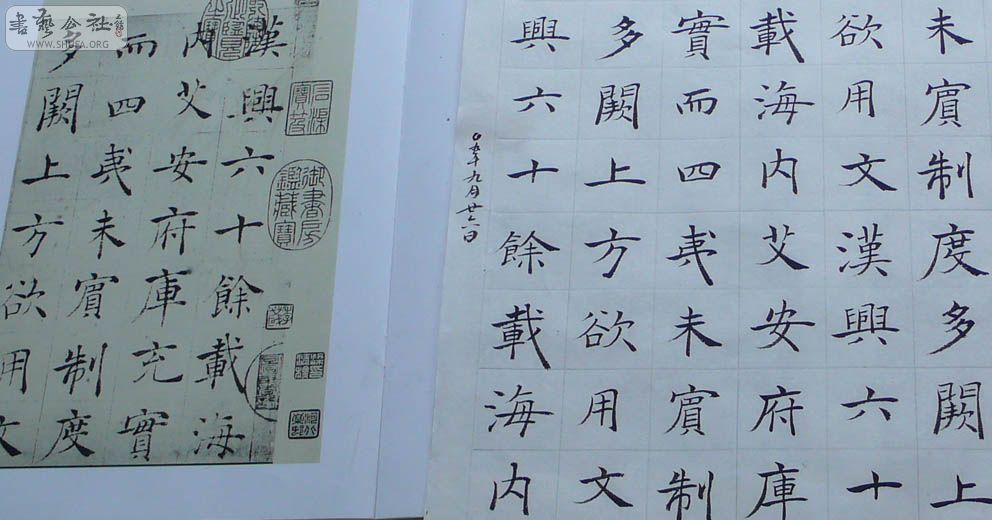 書藝公社
WWW.SHUFA.ORG
漢興六十餘載海
内艾安府庫充實
而四夷未賓制度
多闕上方欲用文
御書房鑑藏寶
未賓制度多闕上
欲用文漢興六十
載海内艾安府庫
實而四夷未賓制
多闕上方欲用文
興六十餘載海内
0五年九月廿六日